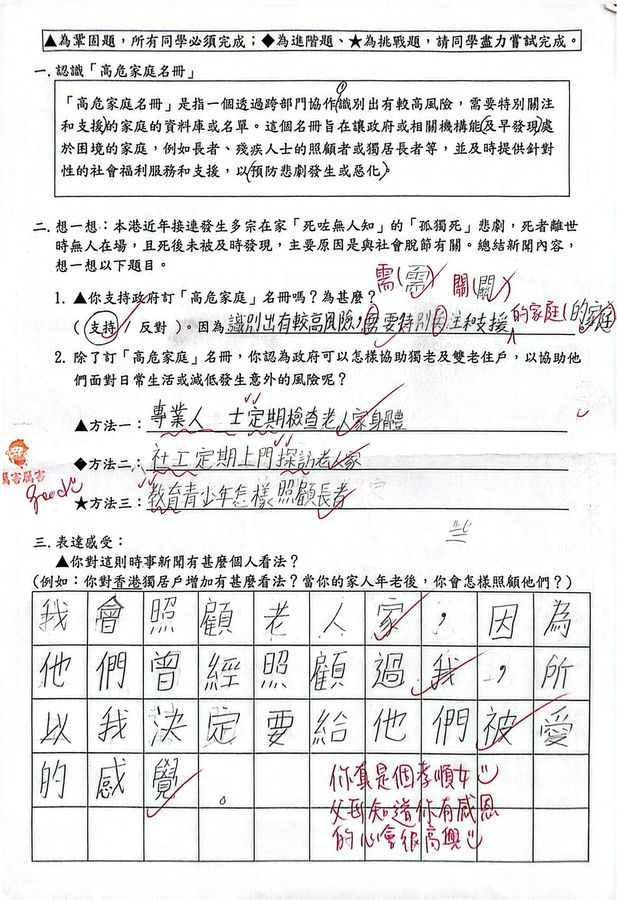 ▲為鞏固題，所有同學必須完成；◆為進階題、★為挑戰題，請同學盡力嘗試完成。
一. 認識「高危家庭名冊」
「高危家庭名冊」是指一個透過跨部門協作識別出有較高風險，需要特別關注
和支援的家庭的資料庫或名單。這個名冊旨在讓政府或相關機構能及早發現處
於困境的家庭，例如長者、殘疾人士的照顧者或獨居長者等，並及時提供針對
性的社會福利服務和支援，以預防悲劇發生或惡化。
二. 想一想：本港近年接連發生多宗在家「死咗無人知」的「孤獨死」悲劇，死者離世
時無人在場，且死後未被及時發現，主要原因是與社會脫節有關。總結新聞內容，
想一想以下題目。
需(需) 關(關)
1. ▲你支持政府訂「高危家庭」名冊嗎？為甚麼？
的家庭(的家庭)
(支持 / 反對)。因為識別出有較高風險，需要特別關注和支援
2. 除了訂「高危家庭」名冊，你認為政府可以怎樣協助獨老及雙老住戶，以協助他
們面對日常生活或減低發生意外的風險呢？
▲方法一：專業人士定期檢查老人家身體
◆方法二：社工定期上門探訪老人家
厲害厲害
Good
★方法三：教育青少年怎樣照顧長者
三. 表達感受：
▲你對這則時事新聞有甚麼個人看法？
(例如：你對香港獨居戶增加有甚麼看法？當你的家人年老後，你會怎樣照顧他們？)
我會照顧老人家，因為
他們曾經照顧過我，所
以我決定要給他們被愛
的感覺。
你真是個孝順女
父母知道你有感恩
的心會很高興